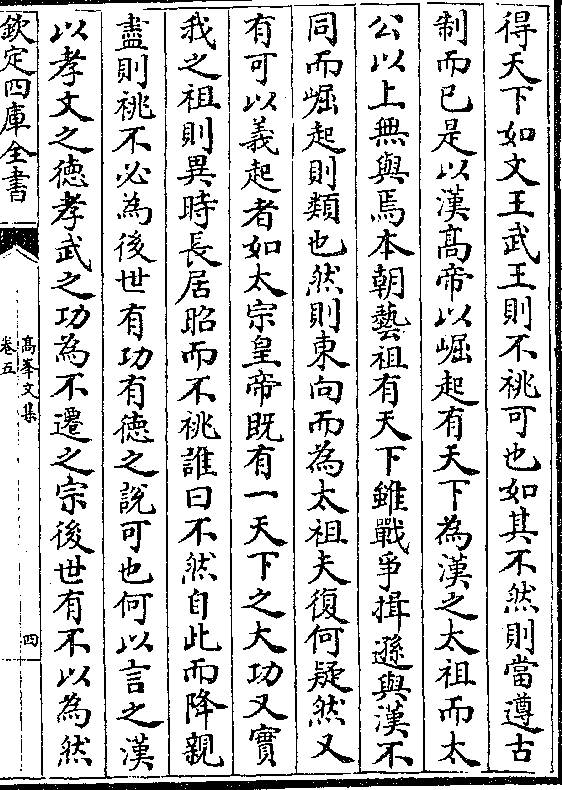 得天下如文王武王則不祧可也如其不然則當遵古
制而已是以漢髙帝以崛起有天下為漢之太祖而太
公以上無與焉本朝藝祖有天下雖戰爭揖遜與漢不
同而崛起則類也然則東向而為太祖夫復何疑然又
有可以義起者如太宗皇帝既有一天下之大功又實
我之祖則異時長居昭而不祧誰曰不然自此而降親
盡則祧不必為後世有功有徳之說可也何以言之漢
以孝文之徳孝武之功為不遷之宗後世有不以為然
欽定四庫全書
髙峯文集
卷五
四